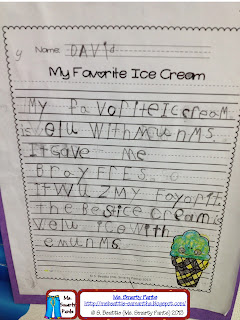 y
Name: DAVid
My Favorite Ice Cream
My favoriteIccream
is velu withmunms.
Itgave me
BrayFres.
It Wuzmy Foyorit
the Bestice cream is
velu ice with
emunms.
Ms. Smarty Pants
Ms. Smarty Pants
http://msbeattie-osmartie.blogspot.com/
© G. Beattie (Ms. Smarty Pants) 2013